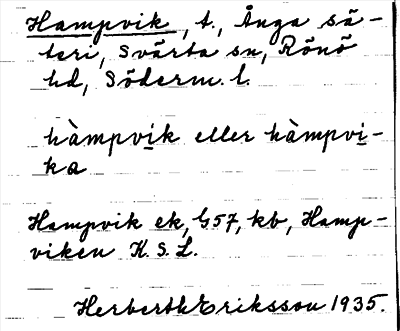 Hampvik, t., Ånga sä-
teri, Svärta sn, Rönö
hd, Söderm. l.
hàmpvik eller hàmpvi-
ka
Hampvik ek, G57, kb, Hamp-
viken K. S. L.
Herberth Eriksson 1935.